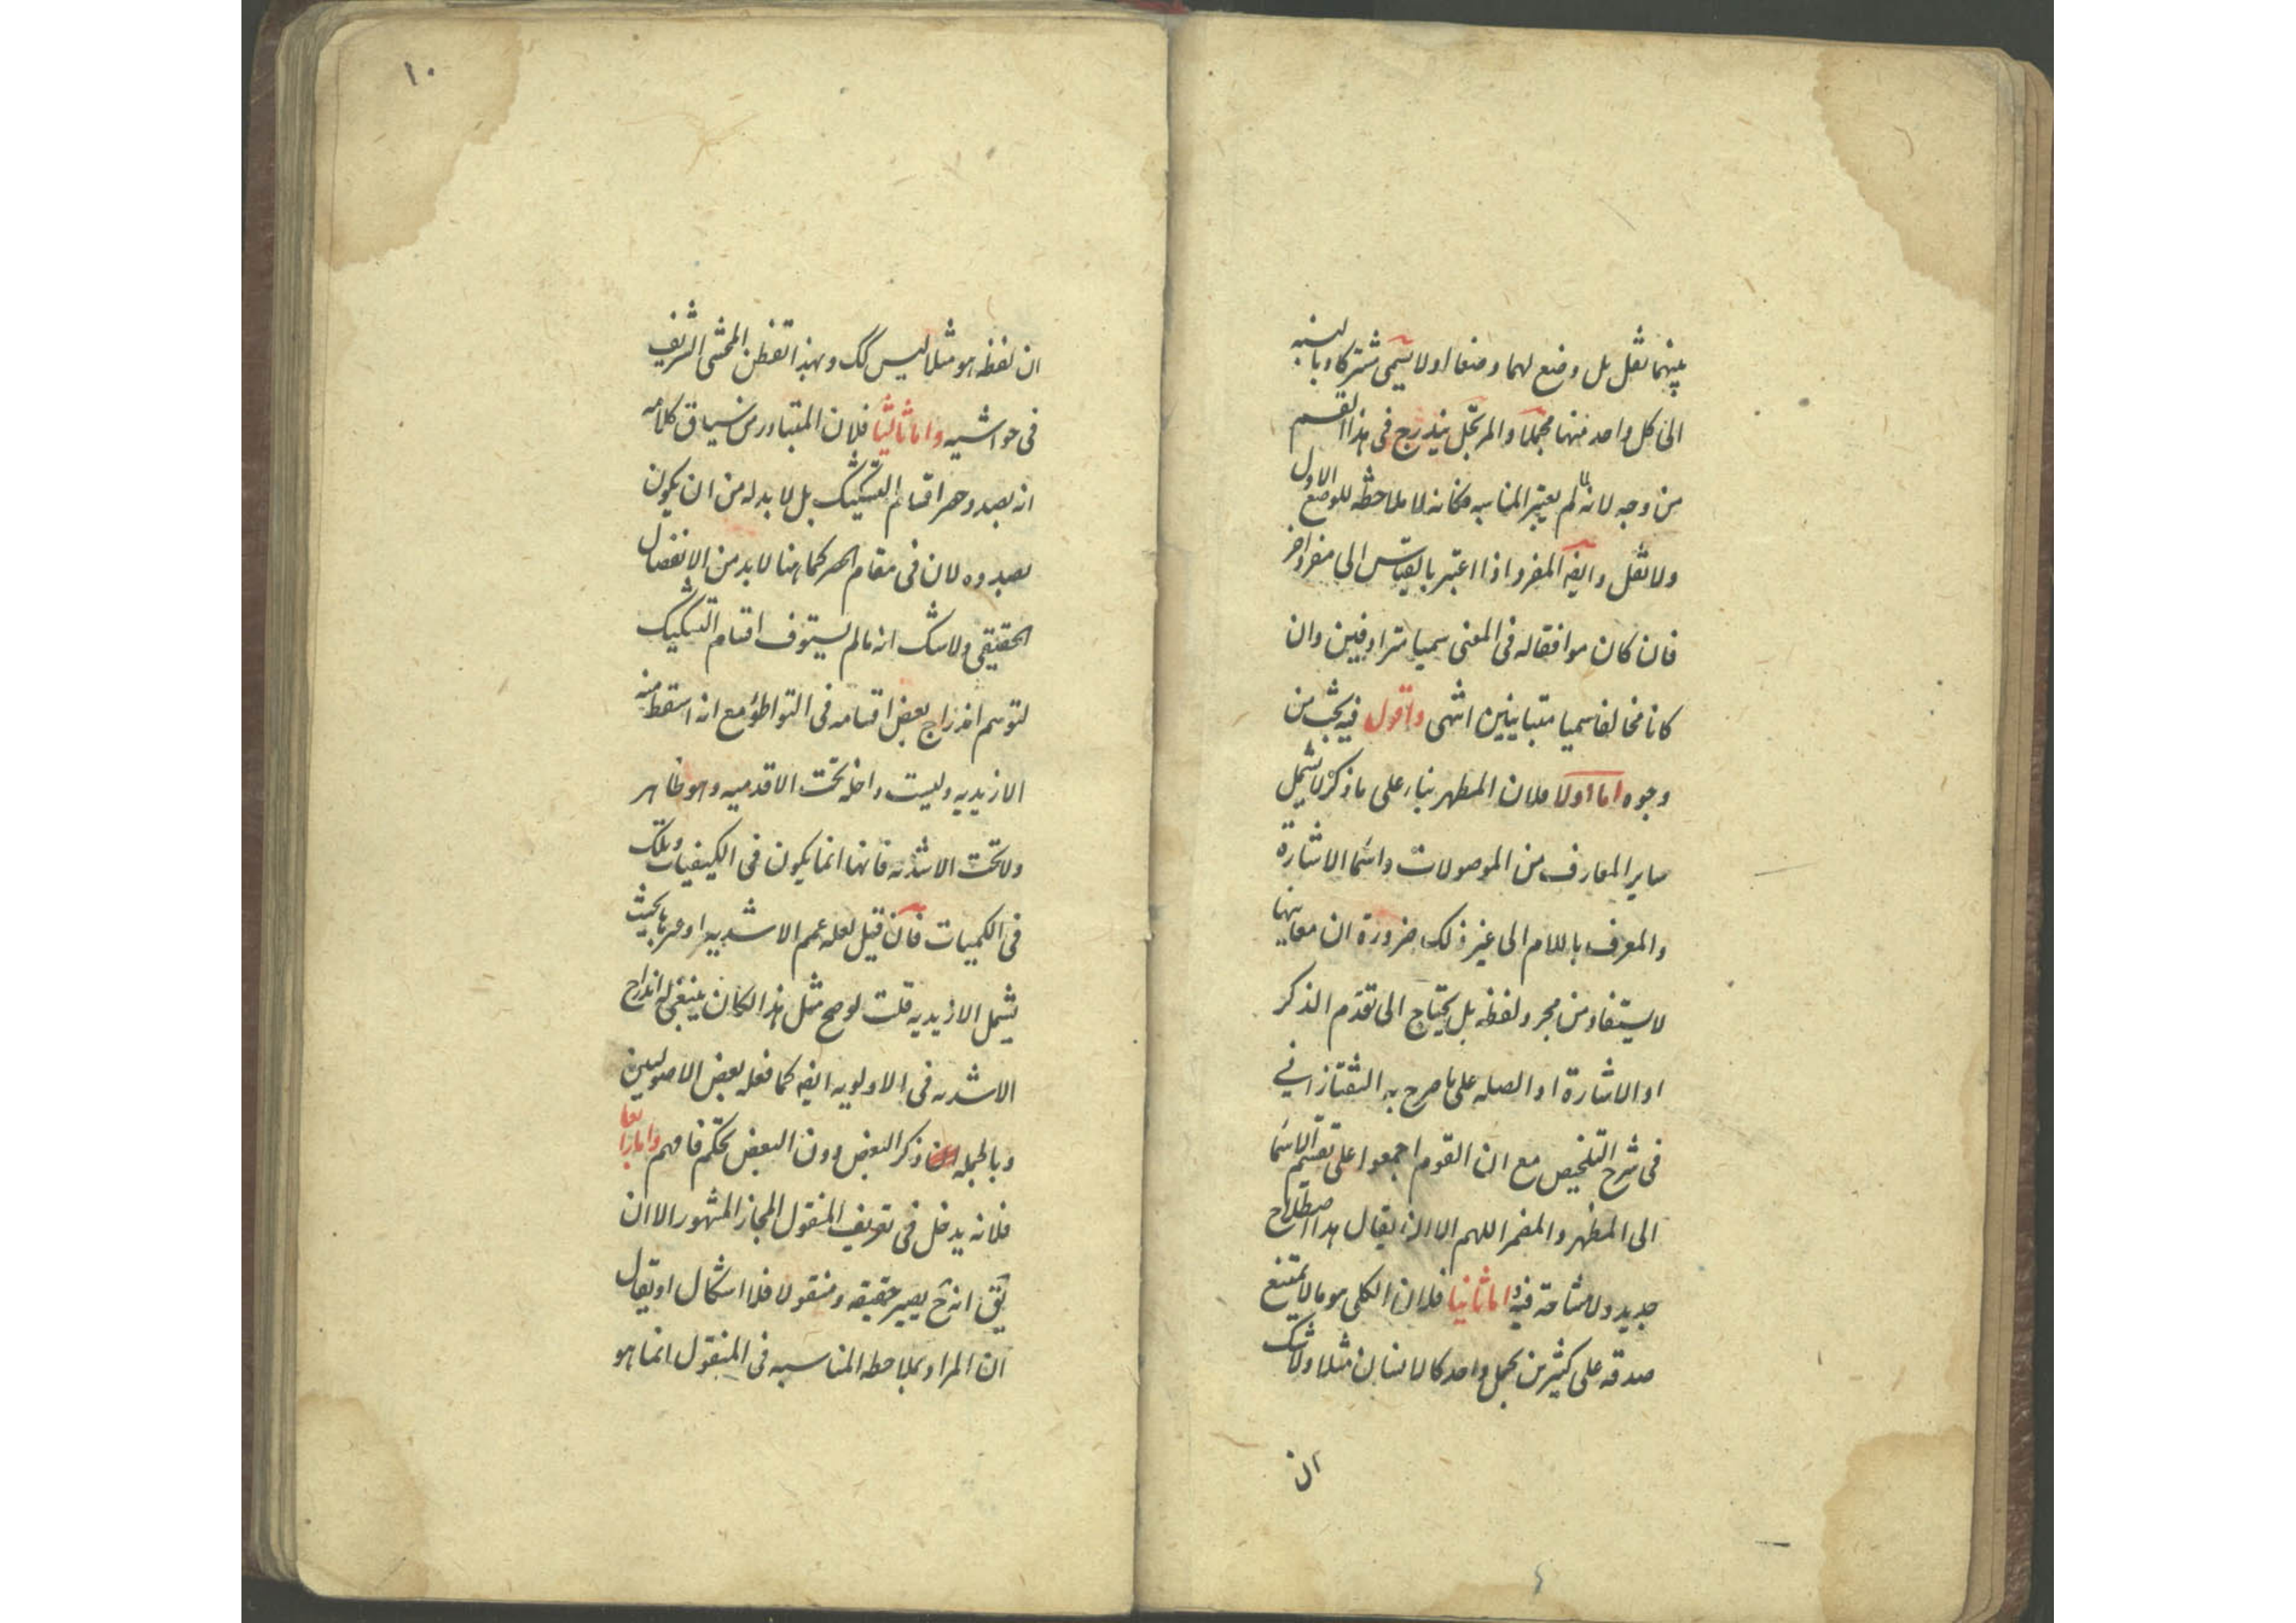 بينهما نقل بل وضع لهما وضعا اولا يسمى مشتركا وبالنسبه
الى كل واحد منهما مجملا والمرتجل يندرج فى هذا القسم
من وجه لانه لما لم يعتبر المناسبه فكانه لا ملاحظه للوضع الاول
ولا نقل وايضه المفرد اذا اعتبر بالقياس الى مفرد اخر
فان كان موافقا له فى المعنى سميا مترادفين وان
كانا مخالفا سميا متباينين انتهى واقول فيه بحث من
وجوه اما اولا فلان المظهر بناء على ما ذكر لا يشمل
ساير المعارف من الموصولات واسما الاشارة
والمعرف باللام الى غير ذلك ضرورة ان معانيها
لا يستفاد من مجرد لفظه بل يحتاج الى تقدم الذكر
او الاشارة او الصله على ما صرح به التفتازانى
فى شرح التلخيص مع ان القوم اجمعوا على تقسيم الاسما
الى المظهر والمضمر اللهم الا ان يقال هذا اصطلاح
جديد ولا مشاحة فيه واما ثانيا فلان الكلى هو ما لا يمتنع
صدقه على كثيرين بحمل واحد كالانسان مثلا ولا شك
ان
١٠
ان لفظه هو مثلا ليس كك وبهذا تفطن المحشى الشريف
فى حواشيه واما ثالثا فلان المتبادر من سياق كلامه
انه بصدد حصر اقسام التشكيك بل لا بد له من ان يكون
بصدده لان فى مقام الحصر كما هنا لا بد من الانفصال
الحقيقى ولا شك انه ما لم يستوف اقسام التشكيك
لتوهم اندراج بعض اقسامه فى التواطؤ مع انه اسقط منه
الازيديه وليست داخله تحت الاقدميه وهو ظاهر
ولا تحت الاشديه فانها انما يكون فى الكيفيات وتلك
فى الكميات فان قيل لعله عمم الاشديه او حررها بحيث
يشمل الازيديه قلت لو صح مثل هذا لكان ينبغى له اندراج
الاشديه فى الاولويه ايضه كما فعله بعض الاصوليين
وبالجمله ذكر البعض دون البعض تحكم فافهم واما رابعا
فلانه يدخل فى تعريف المنقول المجاز المشهور الا ان
يق انه ح يصير حقيقه ومنقولا فلا اشكال او يقال
ان المراد بملاحظه المناسبه فى المنقول انما هو